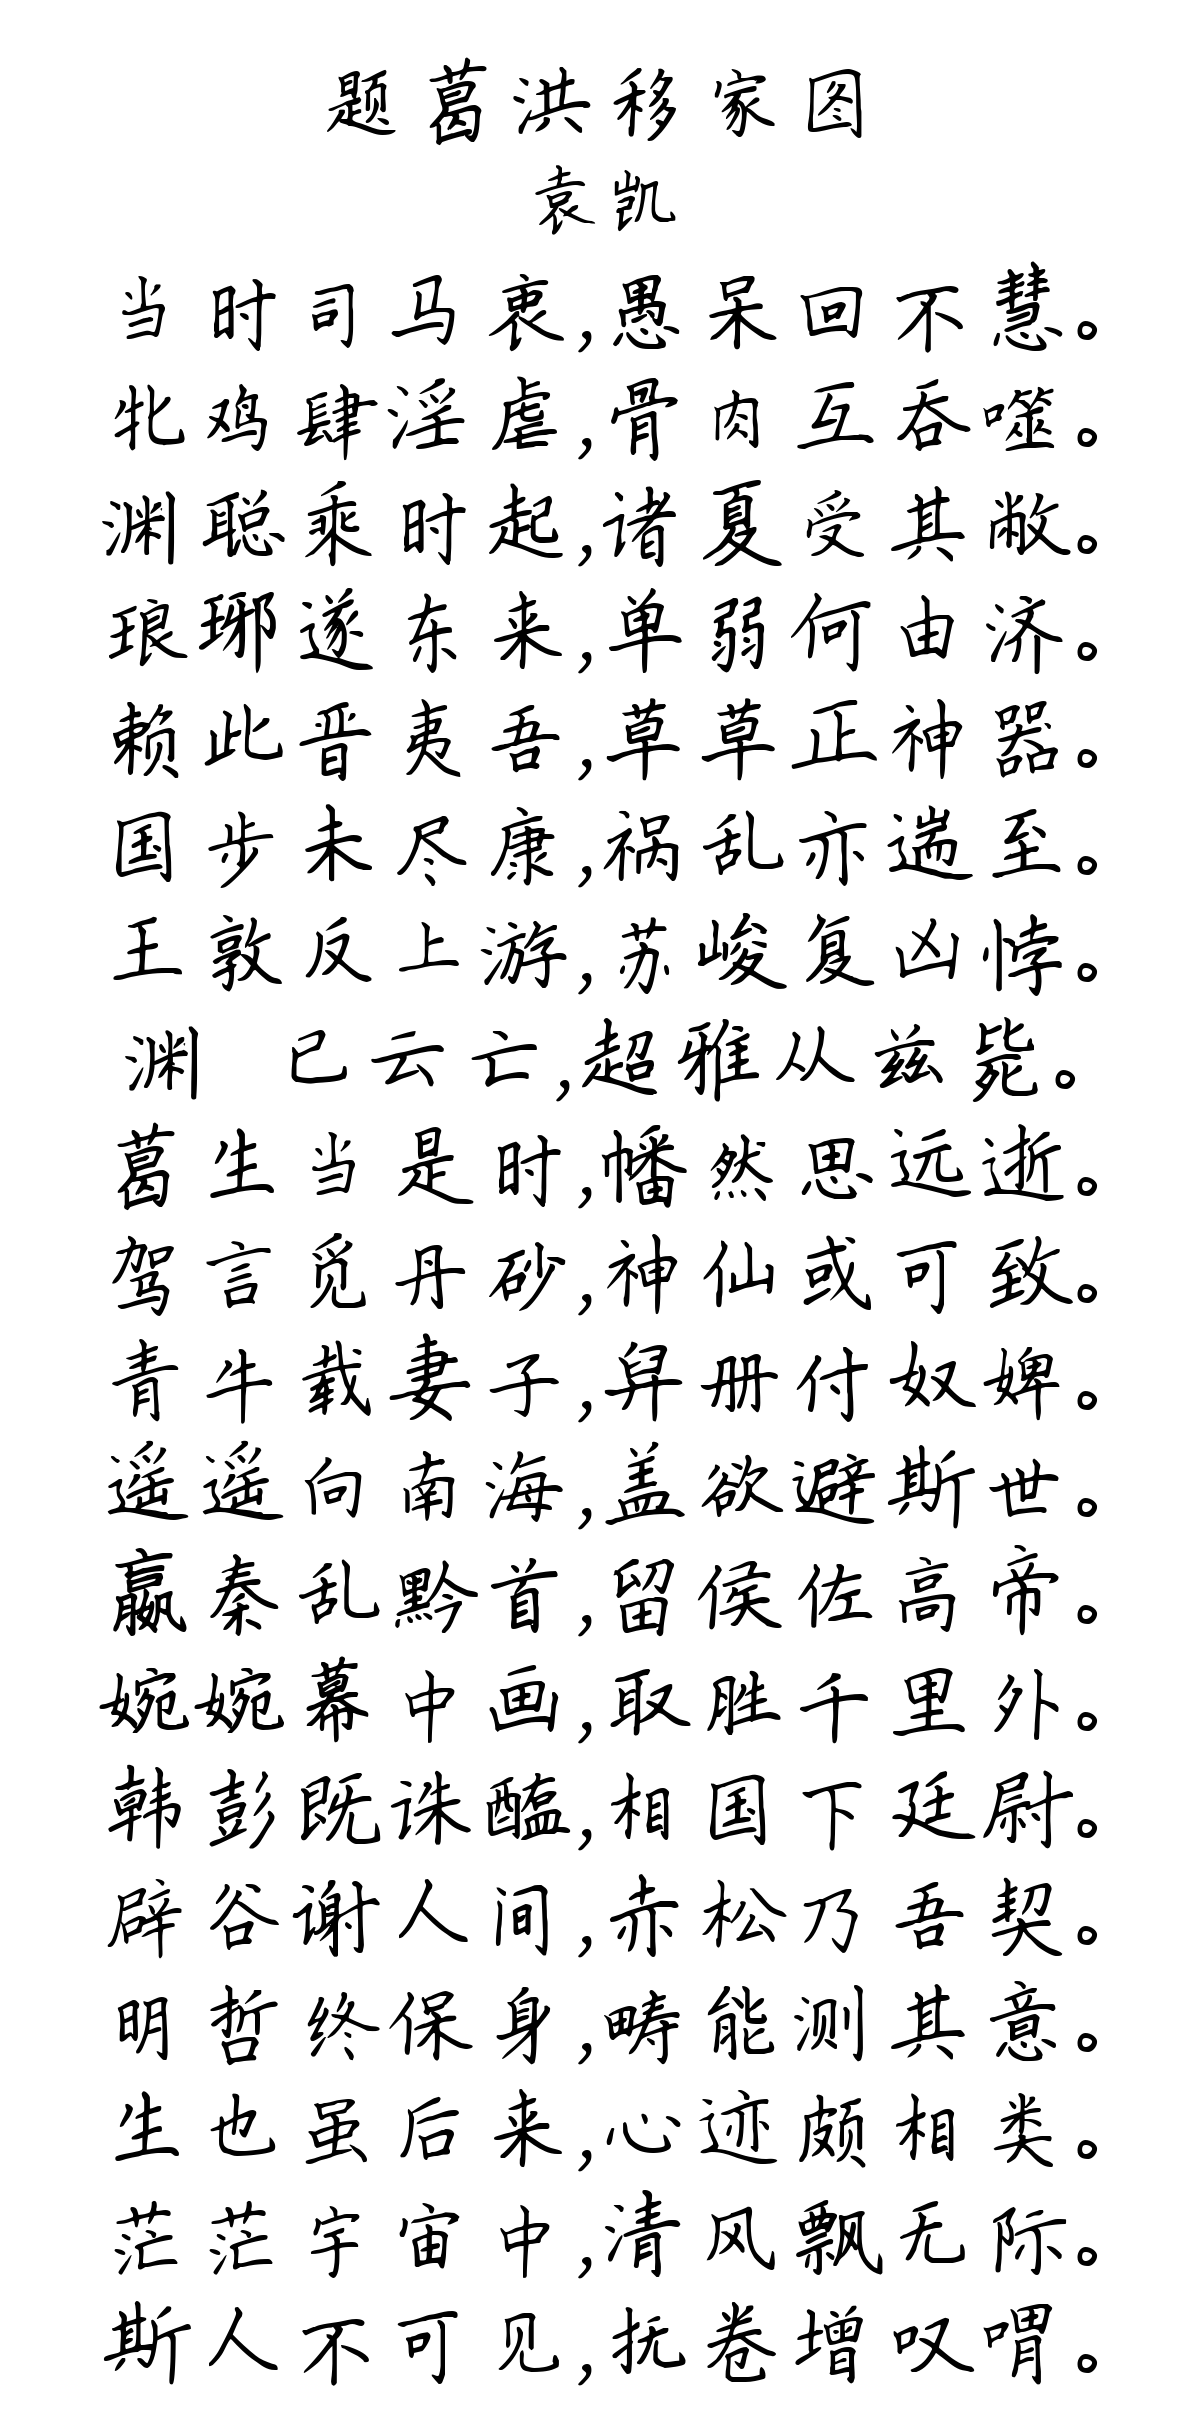 题葛洪移家图
袁凯
当时司马衷,愚呆回不慧。
牝鸡肆淫虐,骨肉互吞噬。
渊聪乘时起,诸夏受其敝。
琅琊遂东来,单弱何由济。
赖此晋夷吾,草草正神器。
国步未尽康,祸乱亦遄至。
王敦反上游,苏峻复凶悖。
渊 已云亡,超雅从兹毙。
葛生当是时,幡然思远逝。
驾言觅丹砂,神仙或可致。
青牛载妻子,舁册付奴婢。
遥遥向南海,盖欲避斯世。
嬴秦乱黔首,留侯佐高帝。
婉婉幕中画,取胜千里外。
韩彭既诛醢,相国下廷尉。
辟谷谢人间,赤松乃吾契。
明哲终保身,畴能测其意。
生也虽后来,心迹颇相类。
茫茫宇宙中,清风飘无际。
斯人不可见,抚卷增叹喟。